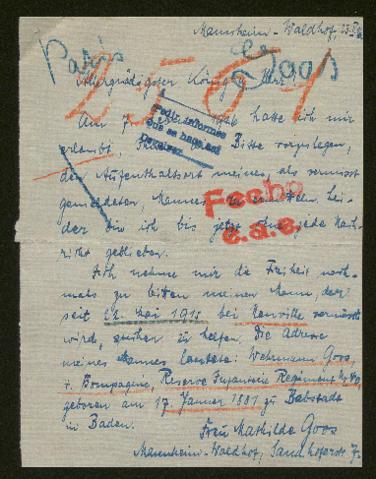 Mannheim-Waldhof,
Paris
Goos
2561
Allergnädigster König u. Herr!
Am 7. hatte ich mir
erlaubt, Bitte vorzulegen,
den Aufenthaltsort meines, als vermisst
gemeldeten, Mannes zu Lei-
der bin ich bis jetzt ohne jede Nach-
richt geblieben.
Pedir informes
que se hace así
Fecho
Ich nehme mir die Freiheit noch-
mals zu bitten meinen Mann, der
seit Mai 1915 bei Neuville vermisst
wird, suchen zu helfen. Die Adresse
meines Mannes lautete: Wehrmann Goos,
Kompagnie, Reserve Infanterie Regiment
geboren am 17 Januar 1881 zu Babstadt
in Baden.
Frau Mathilde Goos
Mannheim-Waldhof, Sandhoferstr. 7.